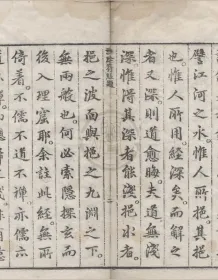 譬江河之水惟人所挹其挹
也。惟人所用。經深矣。而解之
者又深。則道愈晦。夫道無淺
深。惟得其深者能淺。挹水者。
挹之波面與挹之九淵之下。
無兩般也。何必索隱探玄而
後入理窟耶。余註此經無所
倚著。不儒不道不禪。亦儒亦